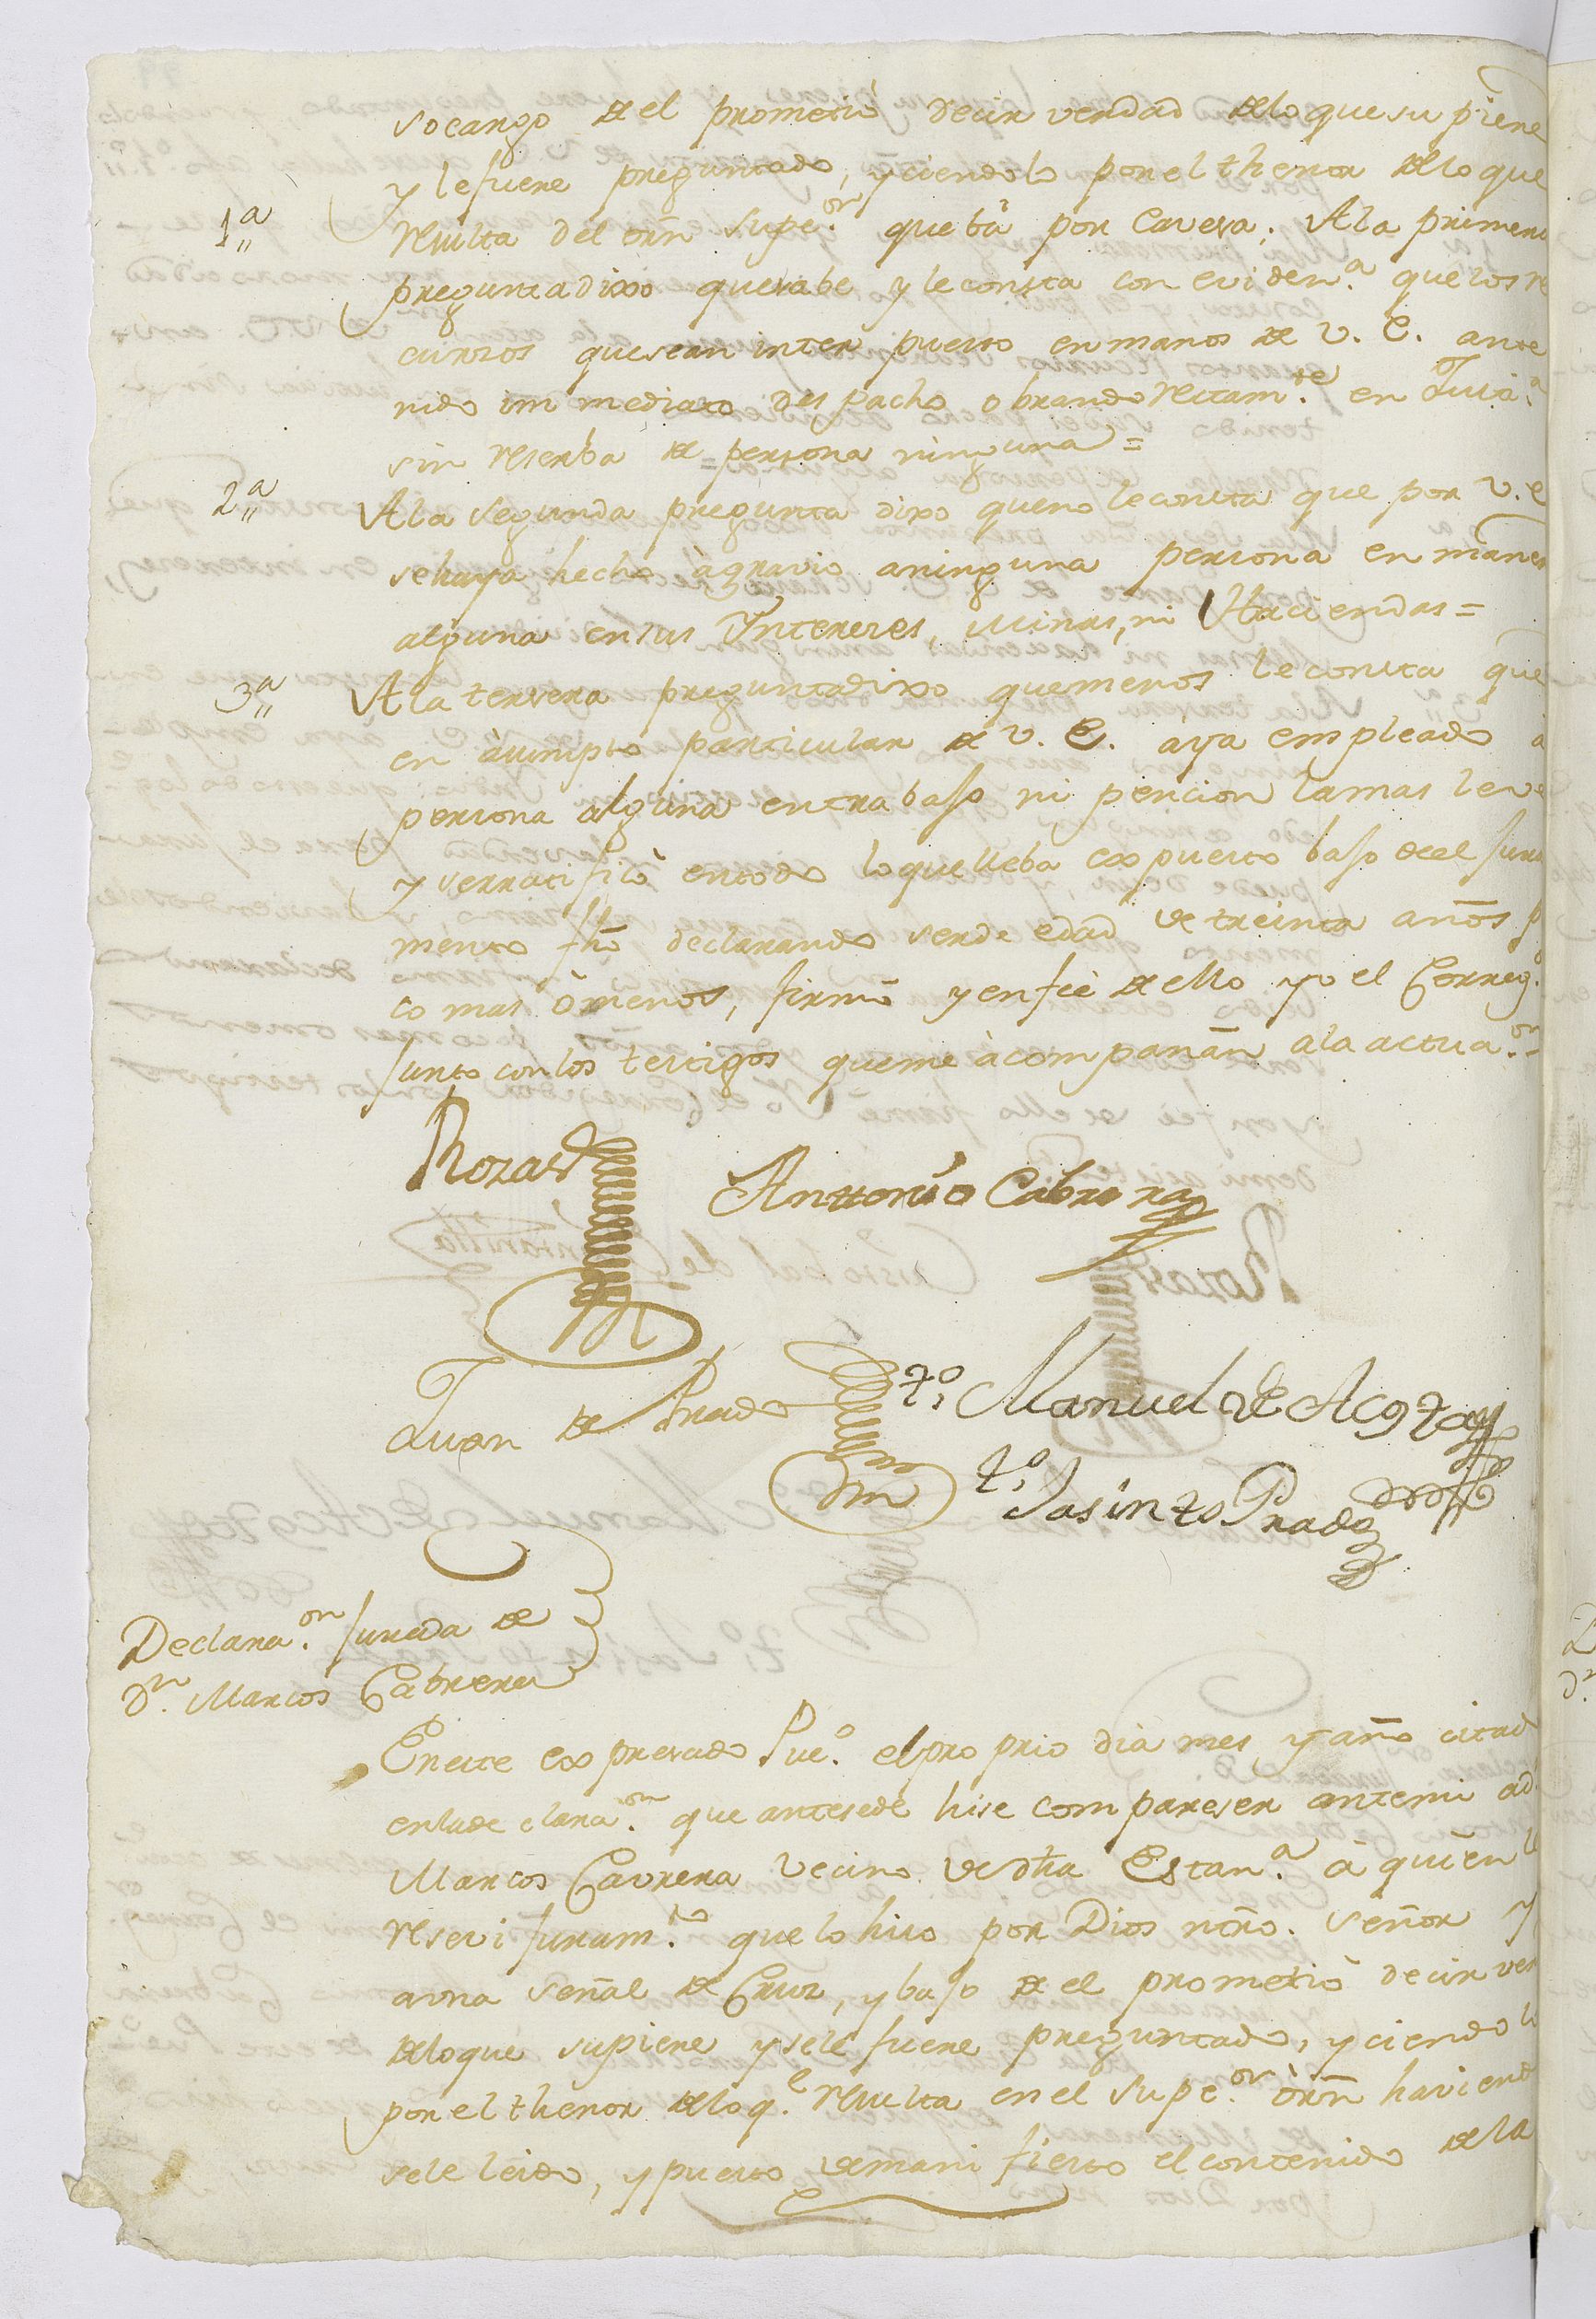 socargo de el prometió decir verdad de lo que supiere
y le fuere preguntado, y ciendolo por el thenor de lo que
1ª resulta del orn supe.or que bà por Cavesa; A la primera
pregunta dixo que sabe y le consta con eviden.a que los re
cursos que sean inter puesto en manos de V. E. ante
nido immediato despacho obrando rectam.te en Justi.a
sin reserba de persona ninguna =
2ª A la segunda pregunta dixo que no le consta que por V. E
se haya hecho àgravio a ninguna persona en maner
alguna en sus Yntereses, minas, ni Haciendas =
3ª A la tersera pregunta dixo que menos le consta que
en àsumpto particular de V. E. aya empleado à
persona alguna en trabajo ni pencion la mas leve
y serratificò en todo lo que lleba expuesto bajo de el jura
mento fho declarando ser de edad de treinta años p
co mas ò menos, firmò y en feè de ello yo el Correg.r
junto con los testigos que me àcompañan a la actua.on
Rozas Anttonio Cabrera
Juan de Prado t.o Manuel de Acosta
t.o Jasinto Prado
Declara.on jurada de
Dn. Marcos Cabrera
En este expresado Pue.o el proprio dia mes y año citad
en la declara.on que antesede hise compareser ante mi a d.
Marcos Cabrera vecino de dha Estan.a à quien le
reseví juram.to que lo hiso por Dios ntro. Señor y
a una señal de Cruz, y bajo de el prometió decir ver
de lo que supiere y se le fuere preguntado, y ciendo lo
por el thenor de lo q.e resulta en el supe.or òrn haviend
sele leido, y puesto de manifiesto el contenido de la